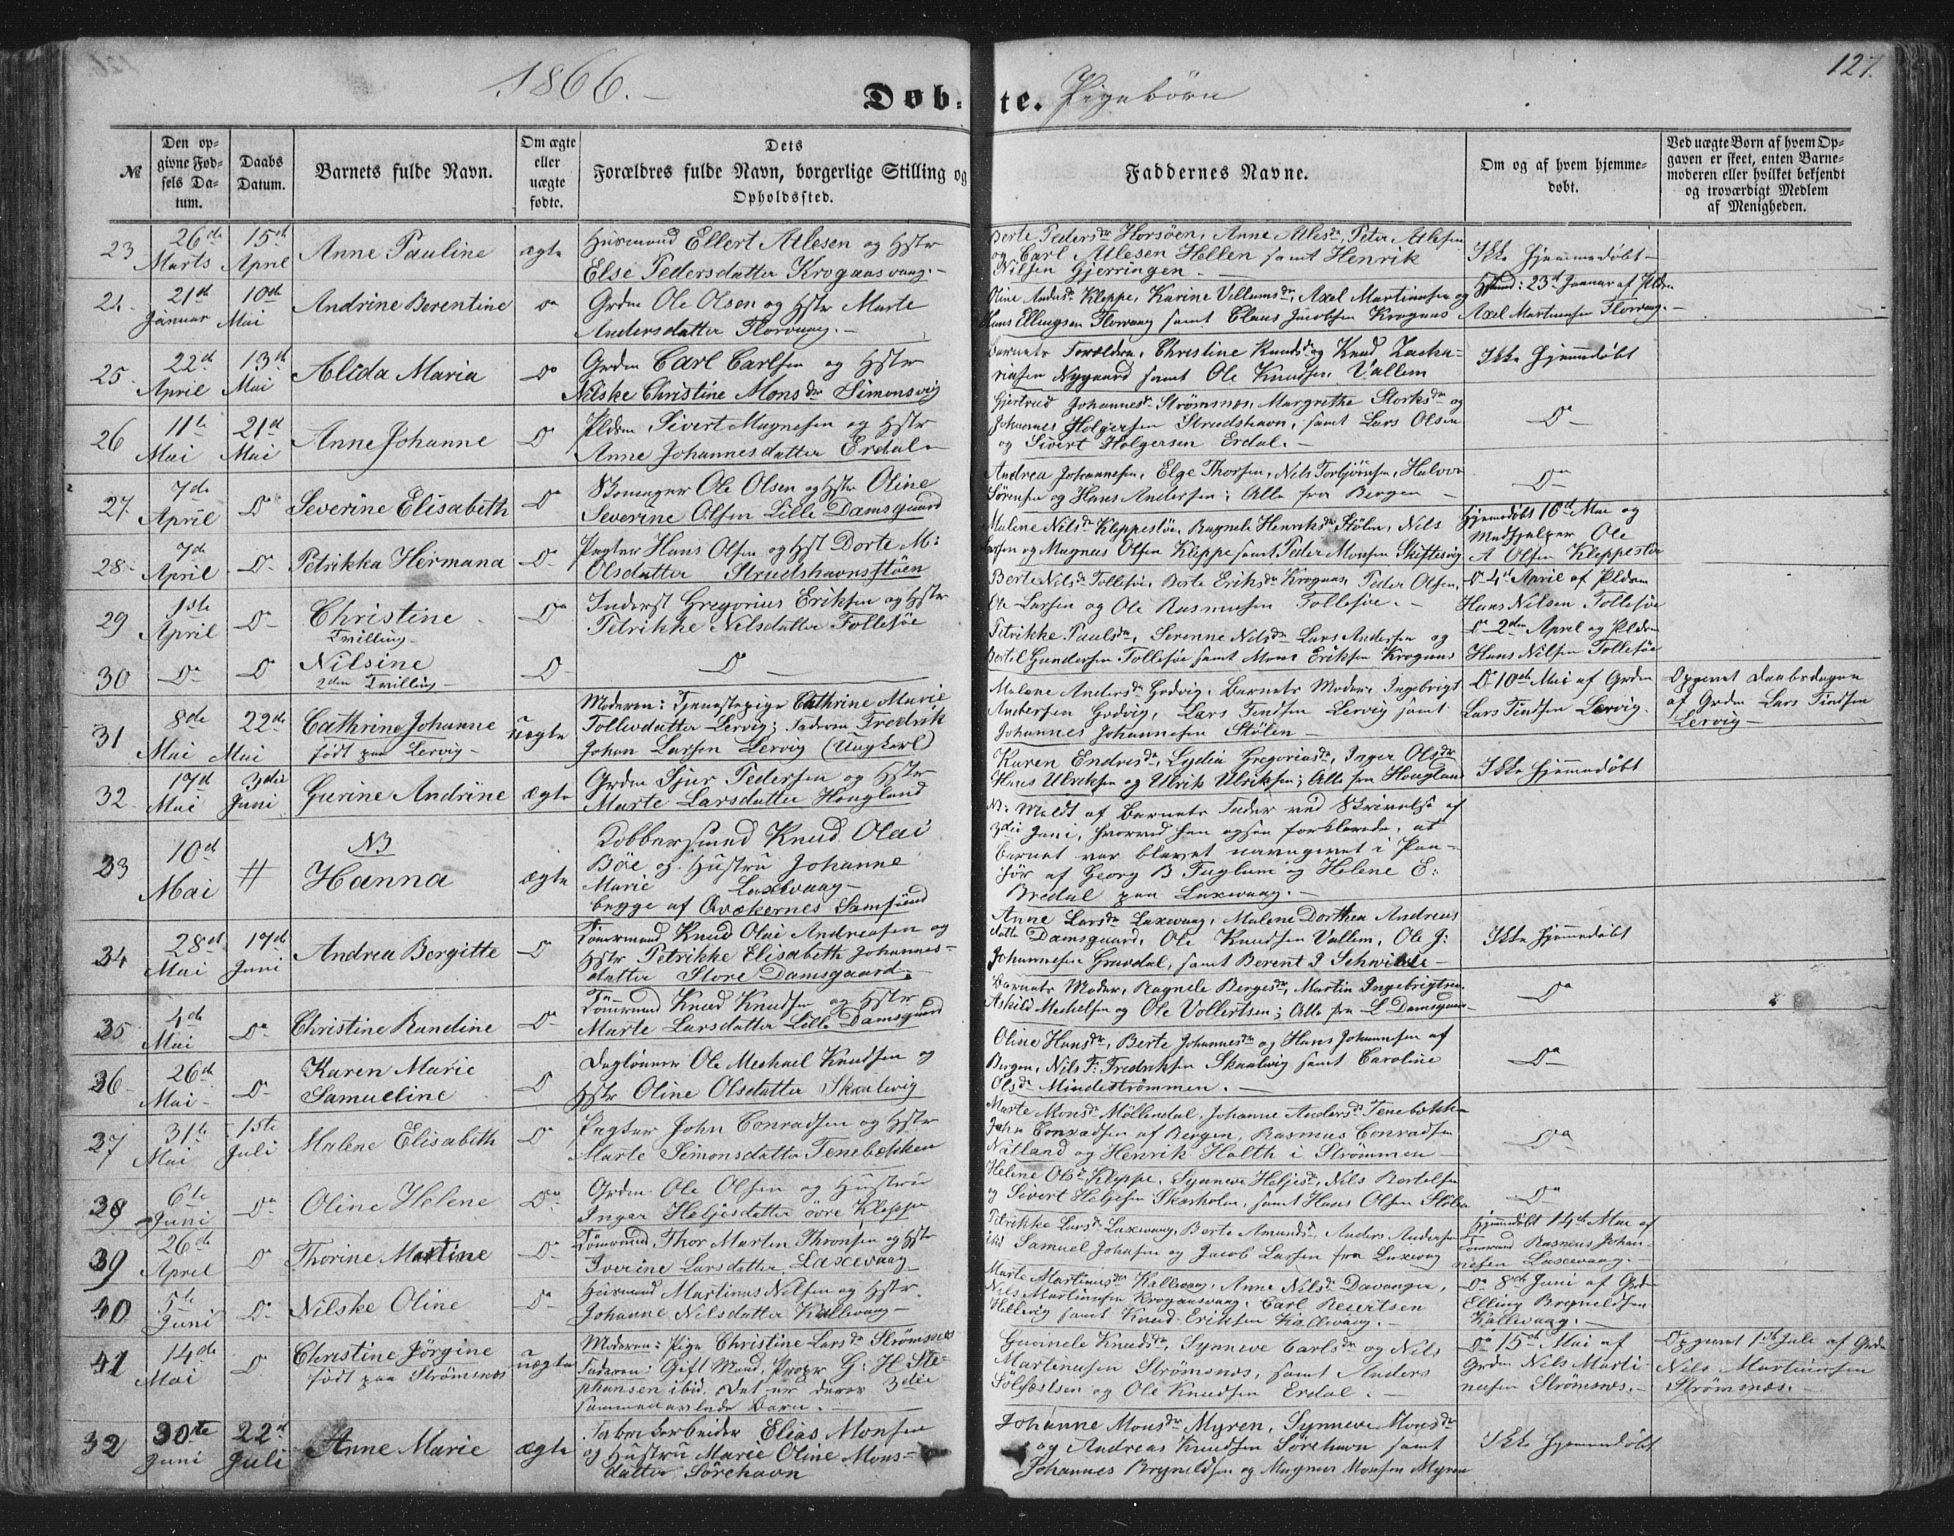 1866.
Døbte. Pigebørn
127.
№
Den opgivne Fødsels Datum.
Daabs Datum.
Barnets fulde Navn.
Om ægte eller uægte fødte.
Dets
Forældres fulde Navn, borgerlige Stilling og
Opholdssted.
Faddernes Navne.
Om og af hvem hjemmedøbt.
Ved uægte Børn af hvem Opgaven er skeet, enten Barnemoderen eller hvilket bekjendt og troværdigt Medlem af Menigheden.
23 26de Marts 15de April Anne Pauline ægte
Huusmand Ellert Atlesen og Hstr
Else Pedersdatter Krogaasvaag.
Berte Pedersdr Horsøen, Anne Atlesdr, Peter Atlesen
og Carl Atlesen Hellen samt Henrik
Nilsen Gjerringen.
Ikke hjemmedøbt
24 21de Januar 10de Mai Andrine Berentine do
Grdm Ole Olsen og Hstr Marte
Andersdatter Florvaag.
Hans Ellingsen Florvaag samt Claus Jacobsen Krogaas
Axel Martinusen Florvag.
25 22de April 13de Mai Alida Maria Do
Grdm Carl Carlsen og Hstr
Nilske Christine Monsdr Simonsvig
Barnets Forældre, Christine Knudsdr og Knud Zacha-
riasen Nygaard samt Ole Knudsen Vallem
Ikke hjemmedøbt
26 11te Mai 21de Mai Anne Johanne Do
Pldsm Sivert Magnesen og Hstr
Anne Johannesdatter Erdal
Gjertrud Johannesdr Strømsnes, Margrethe Storksdr og
Johannes Holgersen Strudshavn, samt Lars Olsen
og Sivert Holgersen Erdal.
Do
27 7de April Do Severine Elisabeth Do
Skomager Ole Olsen og Hstr Oline
Severine Olsen Lille Damsgaard
Andrea Johannesen, Elge Thorsen, Nils Torbjørnsen, Halvor
Sørensen og Hans Andersen; Alle fra Bergen
Do
28 7de April Do Petrikka Hermana Do
Pagter Hans Olsen og Hst Dorte M:
Olsdatter Strudshavnsstøen
Malene Nilsdr Kleppestø, Ragnele Henriksdr Stølen, Nils
Larsen og Magnus Olsen Kleppe samt Peder Monsen Skiftesvig
Hjemedøbt 10de Mai og
Medhjelper Ole
A Olsen Kleppestø
29 1ste April Do Christine Do
Tvilling
Inderst Gregorius Eriksen og Hstr
Petrikke Nilsdatter Follesøe
Berte Nilsdr Follesøe, Berte Eriksdr Krogaas, Peder Olsen,
Ole Larsen og Ole Rasmusen Follesøe.
Do 4de April af Pldsm
Hans Nilsen Follesøe
30 Do Do Nilsine Do Do
2den Tvilling
Petrikke Paulsdr, Serenne Nilsdr Lars Andersen og
Bertel Gundersen Follesøe samt Mons Eriksen Krogaas
Do 2den April og Pldsm
Hans Nilsen Follesøe
31 8de Mai 22de Mai Cathrine Johanne uægte
født paa Lervig
Moderen: Tjenestepige Cathrine Marie
Tollevsdatter Lervig; Faderen Fredrik
Johan Larsen Lervig (Ungkarl)
Malene Andersdr Godvig, Barnets Moder, Ingebrigt
Andersen Godvig, Lars Findsen Lervig samt
Johannes Johannesen Stølen
Do 10de Mai af Grdm
Lars Findsen Lervig.
Opgivet Daabsdagen
af Grdm Lars Findsen
Lervig
32 17de Mai 3die Juni Gurine Andrine ægte
Grdm Sjur Pedersen og Hstr
Marte Larsdatter Hougland
Karen Endresdr, Lydia Gregoriusdr, Inger Olsdr
Hans Ulriksen og Ulrik Ulriksen; Alle fra Hougland
Ikke hjemmedøbt
33 10de Mai # NB Hanna ægte
Kobbersmed Knud Olai
Bøe og Hustru Johanne
Marie Laxevaag
begge af Qvækernes Samfund
Meldt af Barnets Fader ved Skrivelse af
3die Juni, hvorved han ogsaa forklarede, at
Barnet var blevet navngivet i
af Georg B Fuglum og Helene E:
Bredal paa Laxevaag.
34 28de Mai 17de Juni Andrea Bergitte Do
Tømrmand Knud Olai Andreasen og
Hstr Petrikke Elisabeth Johannes-
datter Store Damsgaard
Anne Larsdr Laxevaag, Malene Dorthea Andreas
datter Damsgaard, Ole Knudsen Vallem, Ole J:
Johannesen Gravdal, samt Berent J Schwilde
Ikke hjemmedøbt
35 4de Mai Do Christine Randine Do
Tømrmand Knud Knudsen og Hstr
Marte Larsdatter Lille Damsgaard
Barnets Moder, Ragnele Bergesdr, Martin Ingebrigtsen
Askild Mechelsen og Ole Vollertsen; Alle fra L Damsgaard
Do
36 26de Mai Do Karen Marie
Samueline Do
Dagløner Ole Mechael Knudsen og
Hstr Oline Olsdatter Skaalevig
Oline Hansdr, Berte Johannesdr og Hans Johannesen af
Bergen, Nils F: Fredriksen Skaalevig samt Caroline
Olsdr Mindestrømmen.
Do
37 31te Mai 1ste Juli Malene Elisabeth Do
Pagter John Conradsen og Hstr
Marte Simonsdatter Tenebekken
Marte Monsdr Møllendal, Johanne Andersdr Tenebekken
John Conradsen af Bergen, Rasmus Conradsen
Natland og Henrik Holth i Strømmen
Do
38 6te Juni Do Oline Helene Do
Grdm Ole Olsen og Hustru
Inger Heljesdatter øvre Kleppe
Helene Olsdr Kleppe, Synneve Heljesdr, Nils Bertelsen
og Sivert Heljesen Skarholm, samt Hans Olsen Stølen
Do
39 26de April Do Thorine Martine Do
Tømrmand Thor Martin Thronsen og Hstr
Iverine Larsdatter Laxevaag
Petrikke Larsdr Laxevaag, Berte Amundsdr, Anders Andersen
ibid Samuel Johnsen og Jacob Larsen fra Laxevaag
Hjemmedøbt 14de Mai af
Tømrmand Rasmus Johan-
nesen Laxevaag.
40 5te Juni Do Nilske Oline Do
Huusmand Martinus Nilsen og Hstr.
Johanne Nilsdatter Kallevaag
Marte Martinusdr Kallevaag, Anne Nilsdr Davanger,
Nils Martinusen Krogaasvaag, Carl Beuritsen
Hellevig samt Knud Eriksen Kallevaag.
Do 8de Juni af Grd
Elling Bryneldsen
Kallevaag.
41 14de Mai Do Christine Jørgine uægte
født paa Strømsnes
Moderen: Pige Christine Larsdr Strømsnes
Faderen: Gift Mand, Propr G: H Ste-
phansen ibid. Det er deres 3die
sammenavlede Barn.
Guronele Knudsdr, Synneve Carlsdr og Nils
Martinusen Strømsnes, samt Anders
Sølfestsen og Ole Knudsen Erdal.
Do 15de Mai af
Grdm Nils Marti-
nusen Strømsnes.
Opgivet 1ste Juli af Grdm
Nils Martinusen
Strømsnes.
32 30te Juni 22de Juli Anne Marie ægte
Fabrikarbeider Elias Monsen
og Hustru Marie Oline Mons-
datter Sørehavn
Johanne Monsdr Myren, Synneve Monsdr
og Andreas Knudsen Sørehavn samt
Johannes Brynildsen og Magnus Monsen Myren
Ikke hjemmedøbt